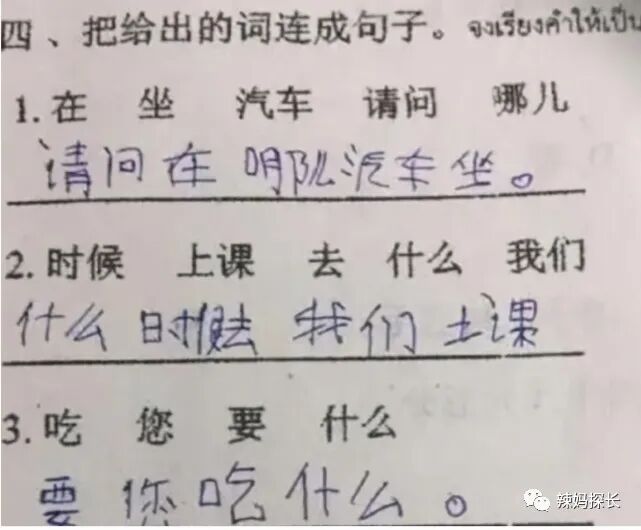 四、把给出的词连成句子。จงเรียงคำให้เป็น
1. 在 坐 汽车 请问 哪儿
请问在 哪儿汽车坐。
2. 时候 上课 去 什么 我们
什么 时候去 我们 上课
3. 吃 您 要 什么
要 您吃什么。
辣妈探长